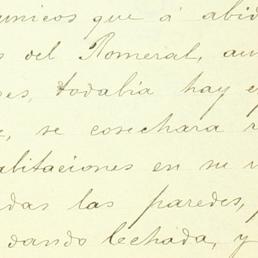 unicos que á abid
s del Romeral, au
es, todabía hay e
, se cosechara
abitaciones en su
das las paredes,
dando lechada, y